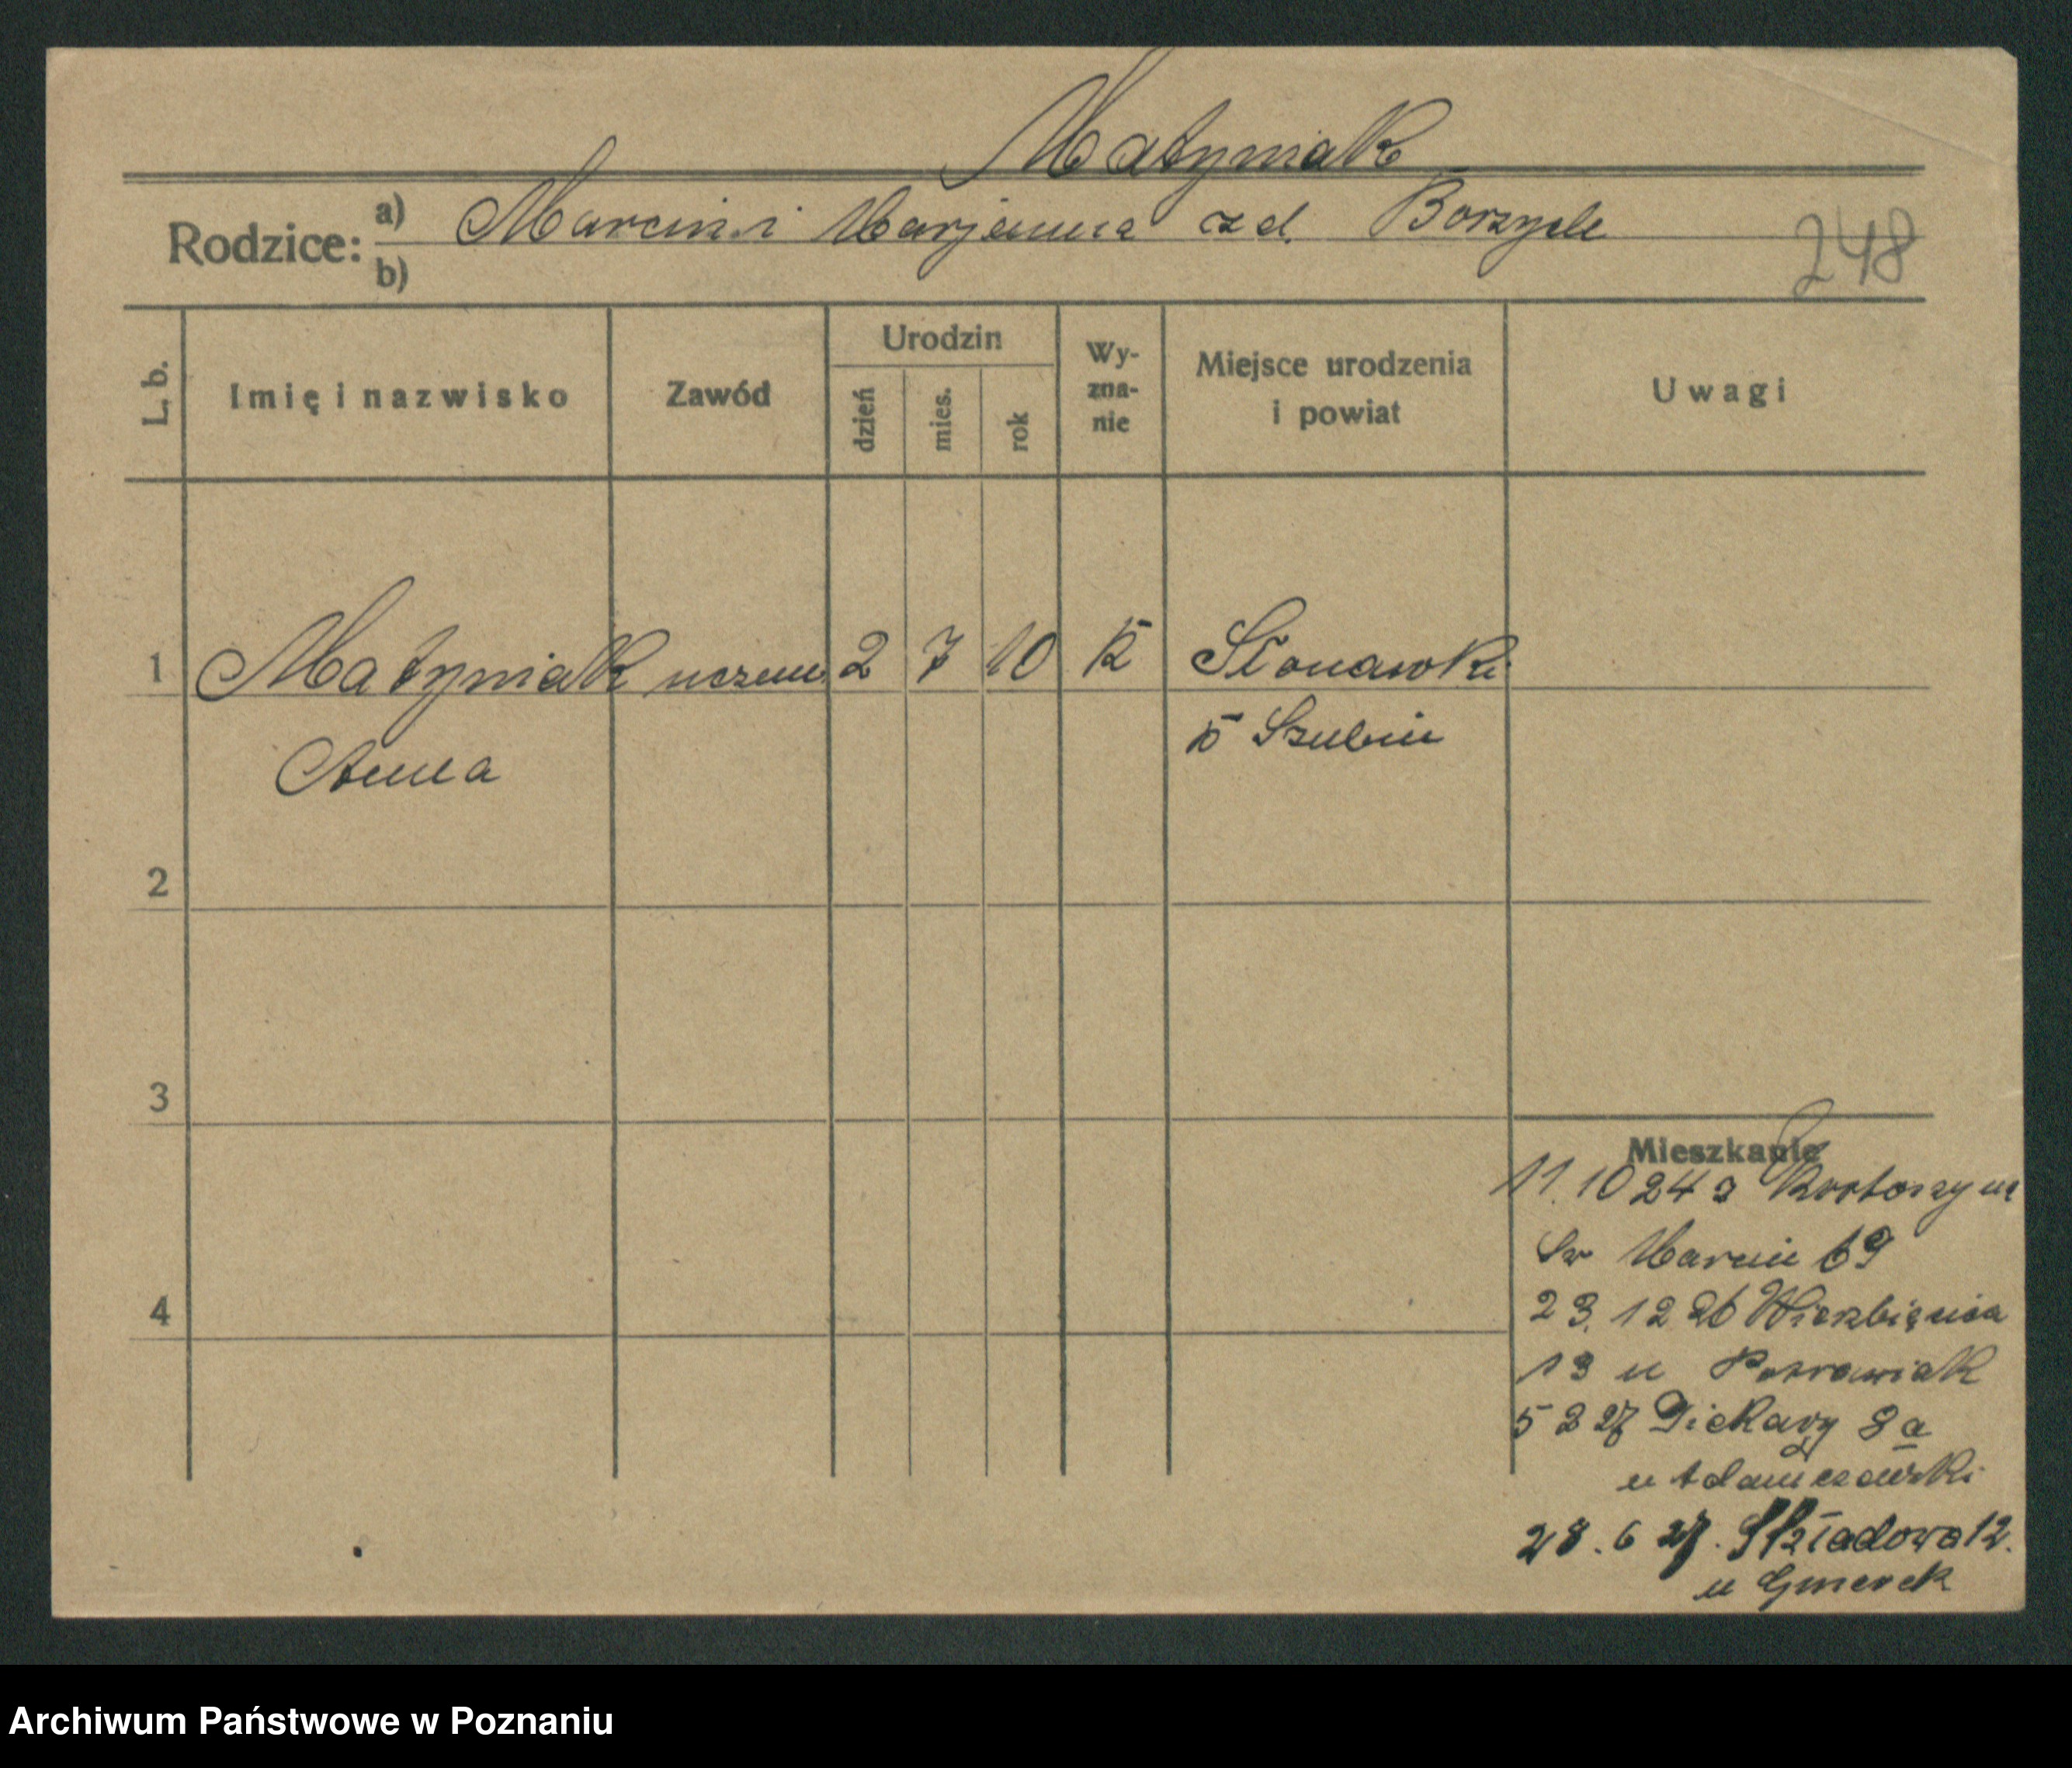 Matyniak
Rodzice: a) Marcin i Marjanna czd. Borzych
b)
248
L. b.
Imię i nazwisko
Zawód
Urodzin
dzień
mies.
rok
Wy-
zna-
nie
Miejsce urodzenia
i powiat
Uwagi
1 Matyniak uczen. 2 7 10 K Słonawki
Anna
p Szubin
2
3
4
Mieszkanie
11.10 24 z Krotoszyna
Sw Marcin 69
23.12 26 Wierzbięcia
13 u Potrawiak
5 2 27 Piekary 8a
u Adamczewski
28.6 27. Składowa 12.
u Gmerek
Archiwum Państwowe w Poznaniu